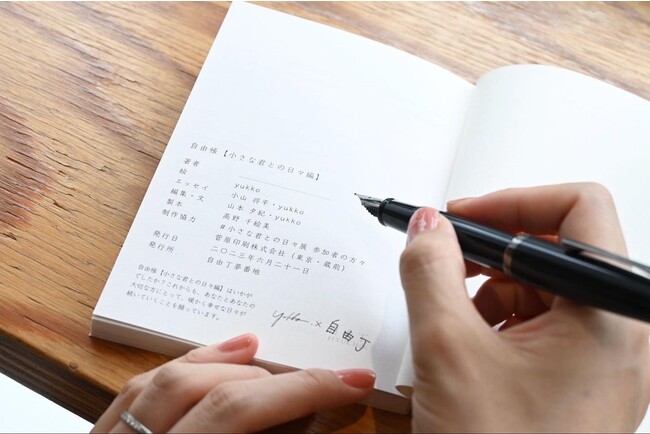 自由帳【小さな君との日々編】
著者
絵 yukko
エッセイ 小山 将平・yukko
編集・文 山本 夕紀・yukko
製本 高野 千絵美
制作協力 #小さな君との日々展 参加者の方々
菅原印刷株式会社(東京・蔵前)
発行日 二〇二三年六月二十一日
発行所 自由丁夢番地
自由帳【小さな君との日々編】はいかが
でしたか?これからも、あなたとあなたの
大切な方にとって、暖かく幸せな日々が
続いていくことを願っています。
yukko. × 自由丁